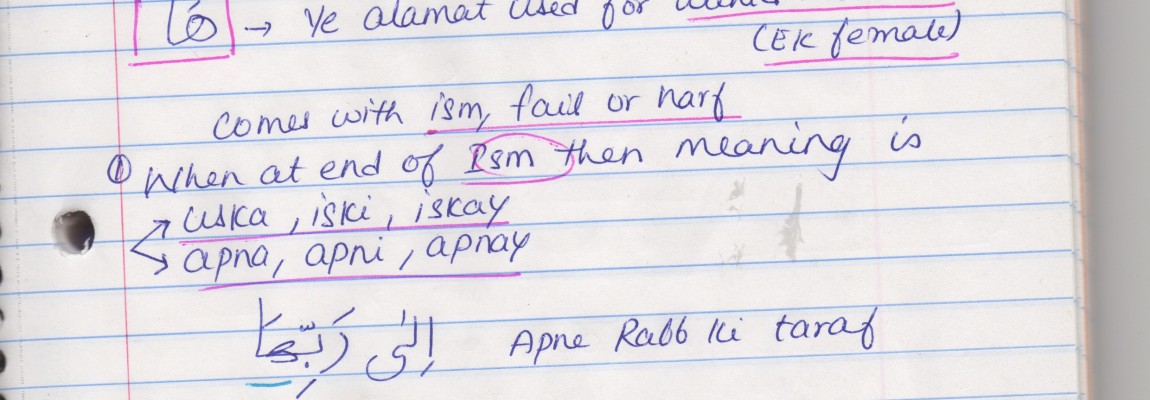 ھَا → Ye alamat used for
(Ek female)
comes with ism, fail or harf
① When at end of Ism then meaning is
uska, iski, iskay
apna, apni, apnay
إِلَىٰ رَبِّهَا Apne Rabb ki taraf